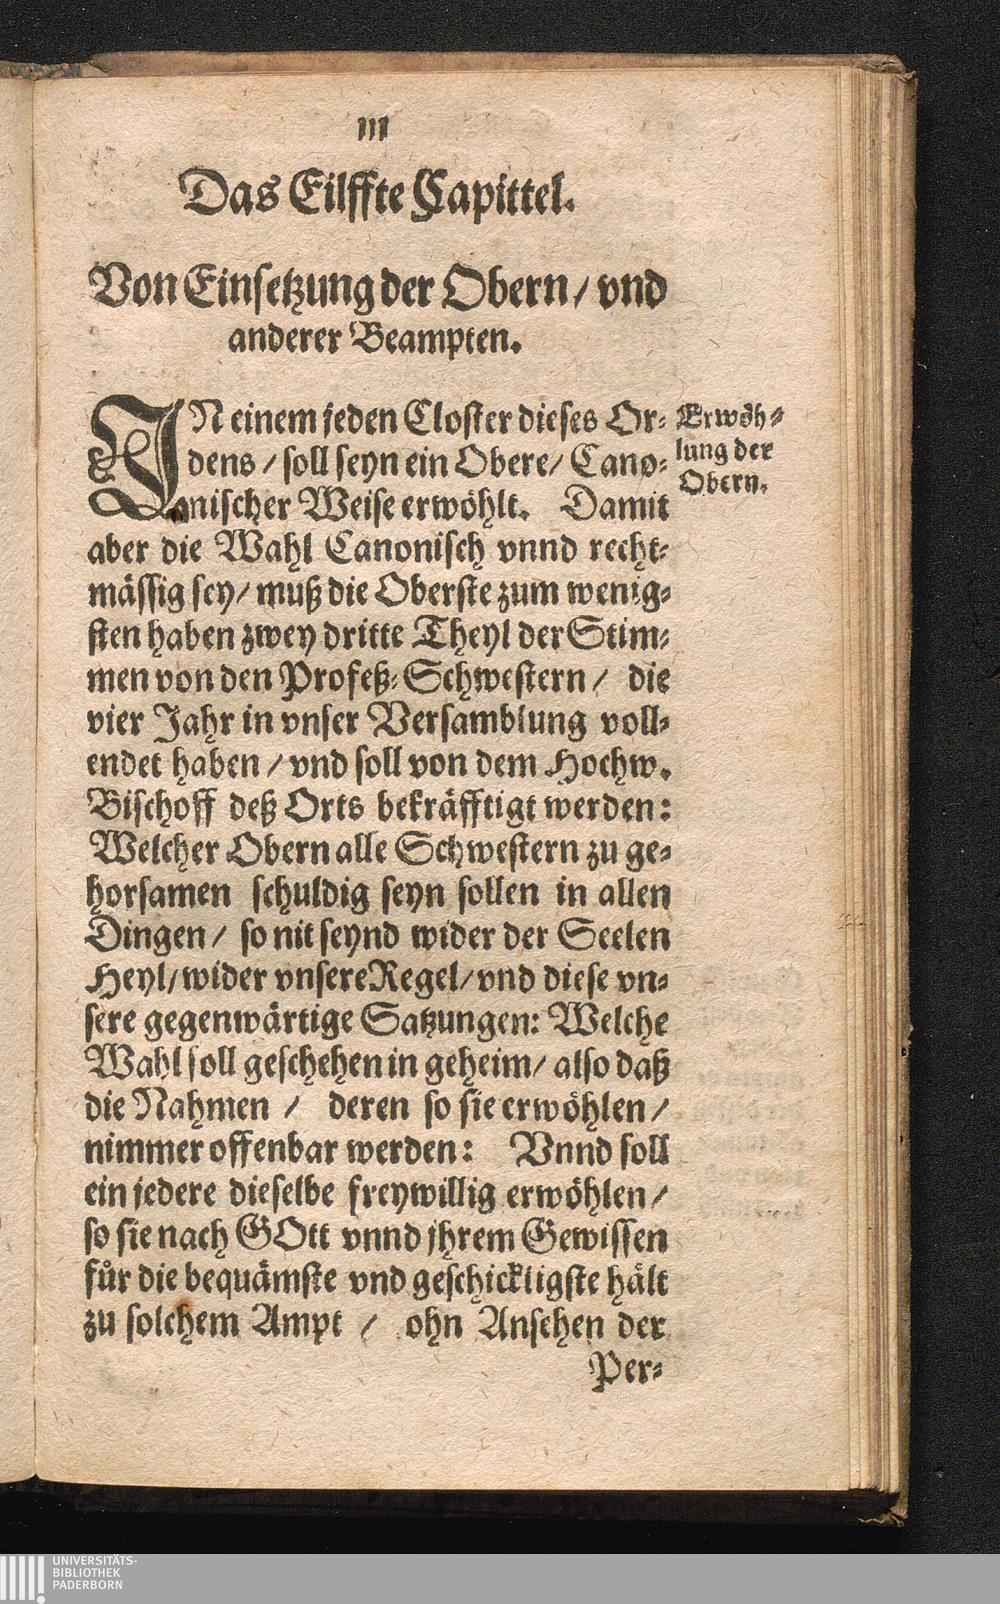 111
Das Eilffte Capittel.
Von Einsetzung der Obern/ vnd
anderer Beampten.
IN einem jeden Closter dieses Or-
dens/ soll seyn ein Obere/ Cano-
nischer Weise erwöhlt. Damit
aber die Wahl Canonisch vnnd recht-
mässig sey/ muß die Oberste zum wenig-
sten haben zwey dritte Theyl der Stim-
men von den Profeß-Schwestern/ die
vier Jahr in vnser Versamblung voll-
endet haben/ vnd soll von dem Hochw.
Bischoff deß Orts bekräfftigt werden:
Welcher Obern alle Schwestern zu ge-
horsamen schuldig seyn sollen in allen
Dingen/ so nit seynd wider der Seelen
Heyl/ wider vnsere Regel/ vnd diese vn-
sere gegenwärtige Satzungen: Welche
Wahl soll geschehen in geheim/ also daß
die Nahmen/ deren so sie erwöhlen/
nimmer offenbar werden: Vnnd soll
ein jedere dieselbe freywillig erwöhlen/
so sie nach GOtt vnnd jhrem Gewissen
für die bequämste vnd geschickligste hält
zu solchem Ampt/ ohn Ansehen der
Per-
Erwöh-
lung der
Obern.
UNIVERSITÄTS-
BIBLIOTHEK
PADERBORN